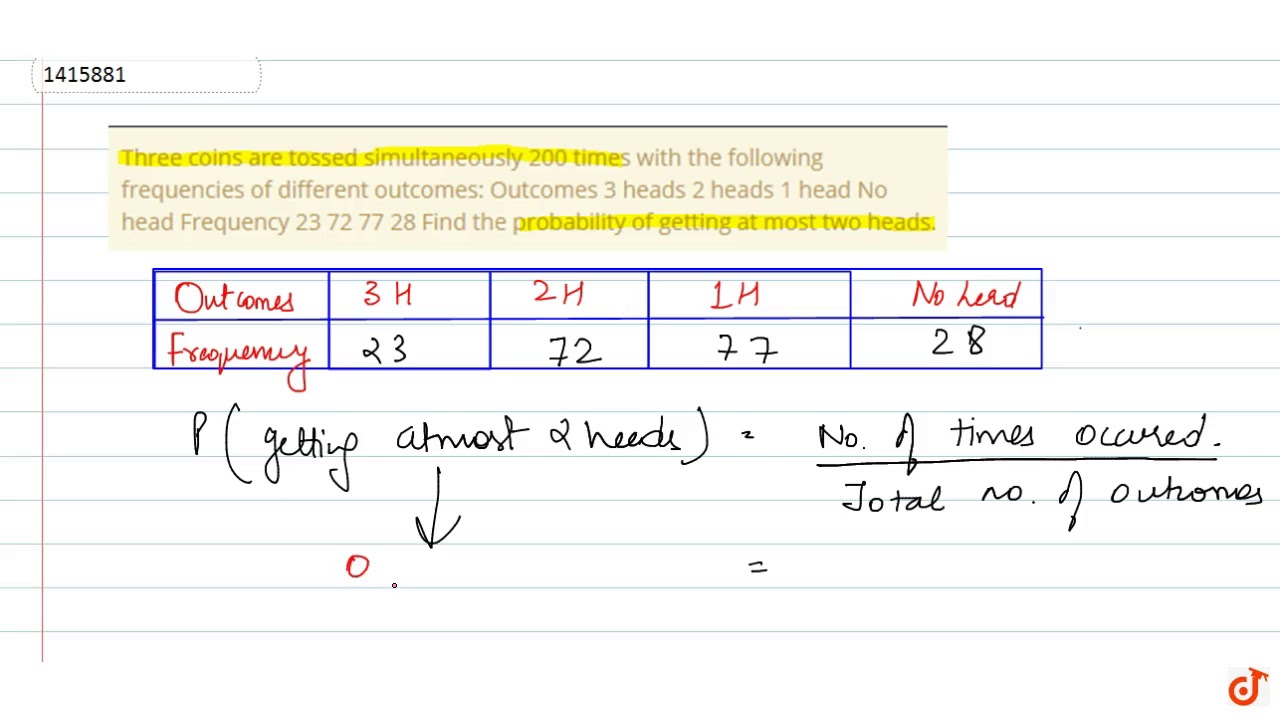 1415881
Three coins are tossed simultaneously 200 times with the following
frequencies of different outcomes: Outcomes 3 heads 2 heads 1 head No
head Frequency 23 72 77 28 Find the probability of getting at most two heads.
Outcomes 3 H 2 H 1 H No head
Frequency 23 72 77 28
P ( getting atmost 2 heads ) = No. of times occured.
Total no. of outcomes
0 =